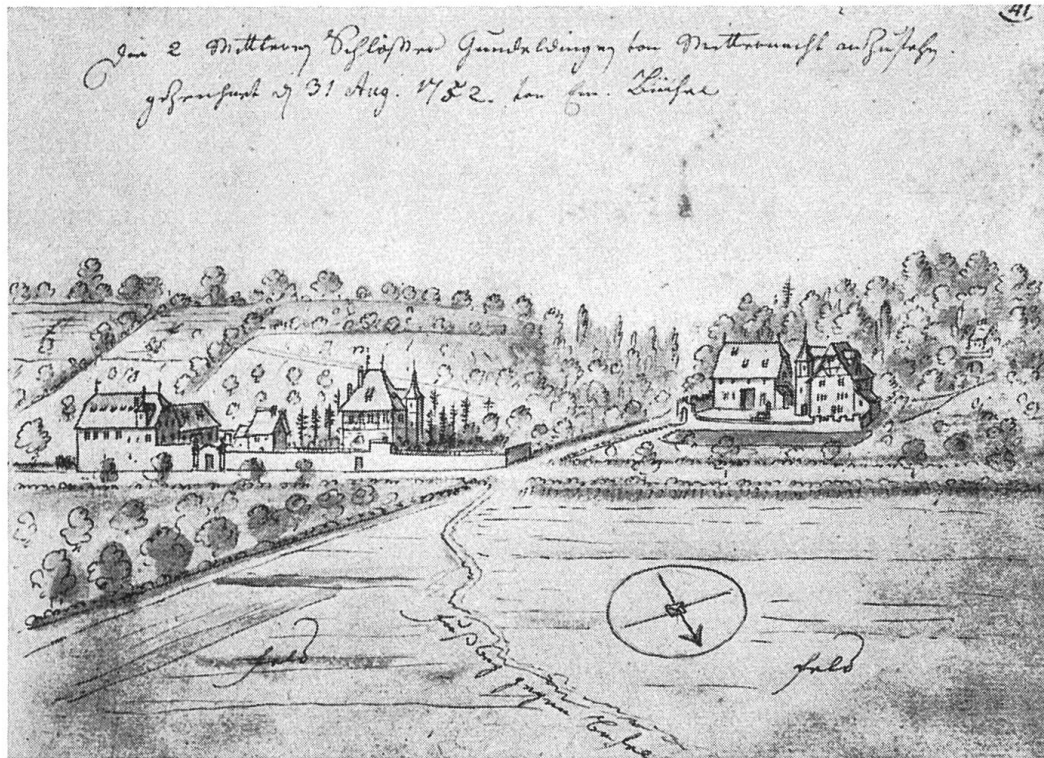 41
Die 2 Mittleren Schlösser Gundeldingen von Mitternacht anzusehn.
gezeichnet d 31 Aug. 1752. von Em. Büchel
Feld
Fußweg gegen Basel
Feld